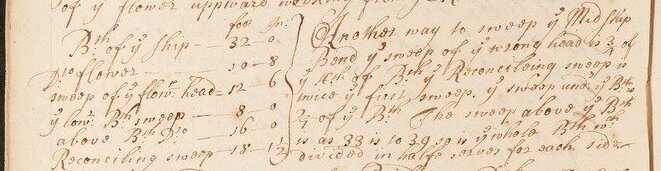 of yͤ flower uppward
foo In:
Bth of yͤ ship — 32 - 0
Dto flower — 10 - 8
sweep of yͤ flowr head = 12 - 6
yͤ lowr Bth sweep — 8 - 0
above Bth Do — 16 - 0
Reconcileing sweep - 18 - 1½
Another way to sweep yͤ Midship
Bend yͤ sweep of yͤ wrong head is 3 of
yͤ of Bth yͤ Reconcileing sweep is
twice yͤ first sweep. yͤ sweep undr yͤ Bth is
of yͤ Bth The sweep above yͤ Bth
is as 33 is to 39 so is yͤ whole Bth wch
divided in halfe serves for each side